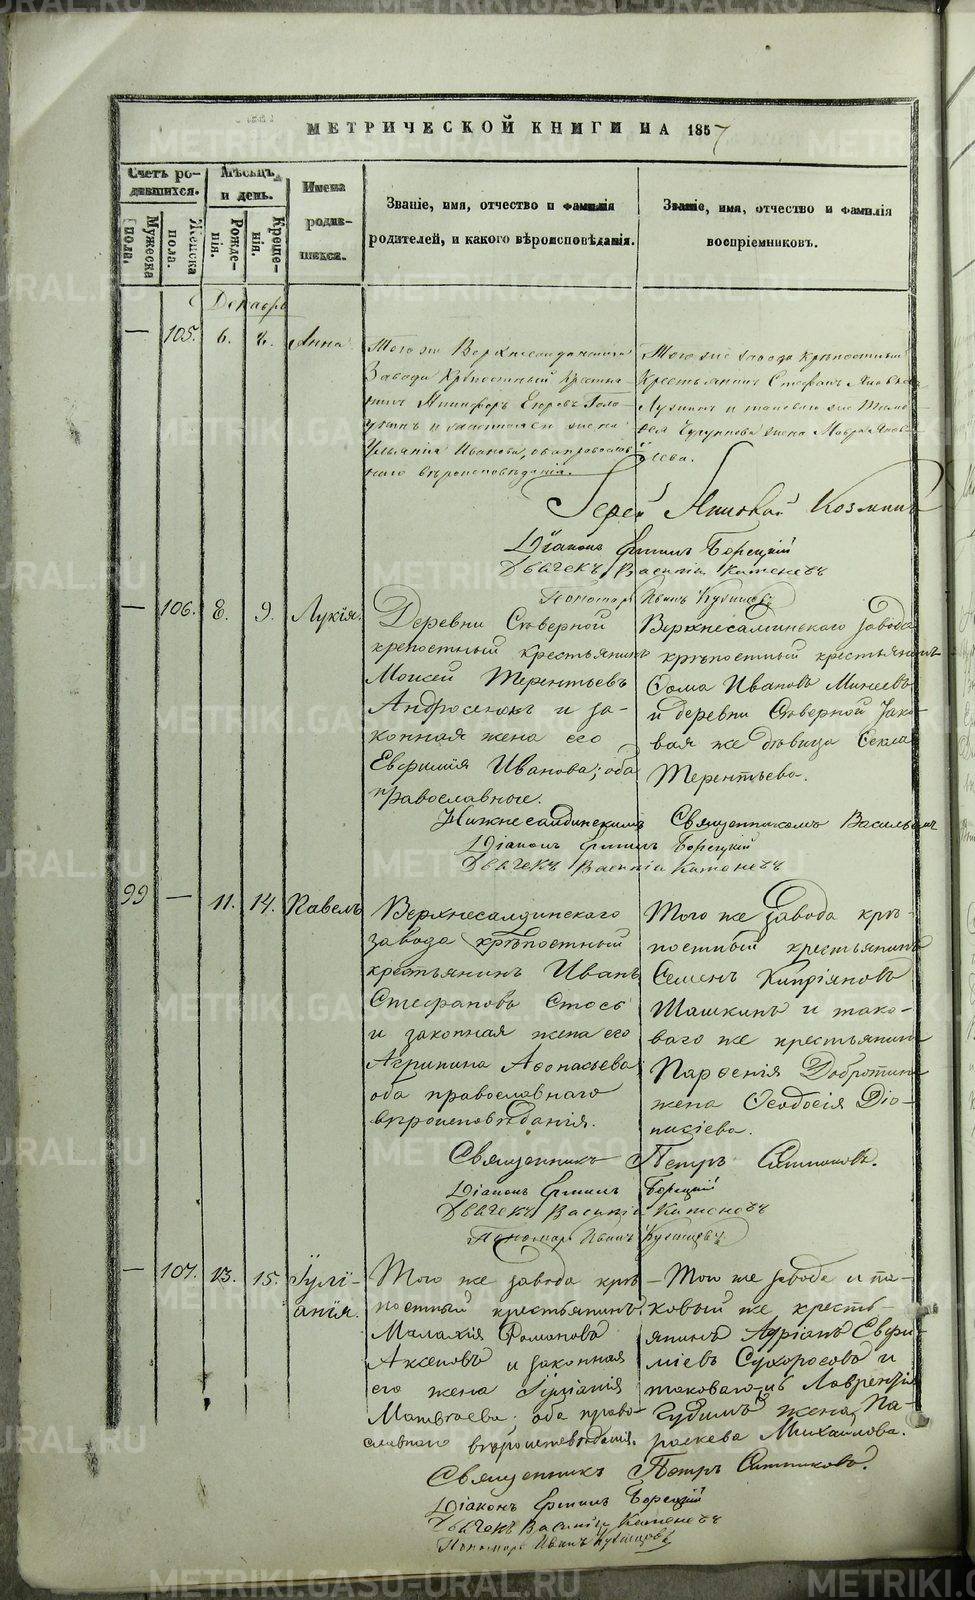 МЕТРИЧЕСКОЙ КНИГИ НА 1857
Счетъ ро-
дившихся.
Мѣсяцъ
и день.
Имена
родив-
шихся.
Званіе, имя, отчество и фамилія
родителей, и какого вѣроисповѣданія.
Званіе, имя, отчество и фамилія
воспріемниковъ.
Мужеска
пола.
Женска
пола.
Рожде-
нія.
Креще-
нія.
Декабрь
— 105. 6. 8. Анна
Того же Верхнесалдинскаго
Завода Крѣпостный крестья-
нинъ Никифоръ Егоровъ
и законная жена
Ульянія Иванова, оба православ-
наго вѣроисповѣданія.
Того же завода Крѣпостный
Крестьянинъ Стефанъ Яковлевъ
и таковаго же
жена Мавра Яков-
лева.
Іерей Козминъ
Діаконъ Ермилъ Борецкій
Дьячекъ Василій Катеневъ
Пономарь Иванъ
— 106. 8. 9. Лукія.
Деревни Сѣверной
крепостный крестьянинъ
Моисей Терентьевъ
Андросенокъ и за-
конная жена его
Евфимія Иванова; оба
православные.
Верхнесалдинскаго завода
крѣпостный крестьянинъ
Ѳома Ивановъ Минеевъ
и деревни Сѣверной тако-
вая же дѣвица Ѳекла
Терентьева.
Нижнесалдинскимъ Священникомъ Васильемъ
Діаконъ Ермилъ Борецкій
Дьячекъ Василій Катеневъ
99 — 11. 14. Павелъ
Верхнесалдинскаго
завода крѣпостный
крестьянинъ Иванъ
Стефановъ Стось
и законная жена его
Агрипина Аѳонасьева
оба православнаго
вѣроисповѣданія.
Того же завода крѣ-
постный крестьянинъ
Семенъ Кипріяновъ
Шашкинъ и тако-
ваго же крестьянина
Парѳенія Добротина
жена Ѳеодосія Діо-
нисіева.
Священникъ Петръ Ситниковъ.
Діаконъ Ермилъ Борецкій
Дьячекъ Василій Катеневъ
Пономарь Иванъ
— 107. 13. 15. Іулі-
анія.
Того же завода крѣ-
постный крестьянинъ
Малахія Ѳомановъ
Аксеновъ и законная
его жена Іуліанія
Матвѣева оба право-
славнаго вѣроисповѣданія.
Того же завода и та-
ковый же кресть-
янинъ Адріанъ Евфи-
міевъ Сухоросовъ и
таковаго-жъ Лаврентія
Гудина жена, Па-
раскева Михайлова.
Священникъ Петръ Ситниковъ.
Діаконъ Ермилъ Борецкій
Дьячекъ Василій Катеневъ
Пономарь Иванъ
METRIKI.GASO-URAL.RU